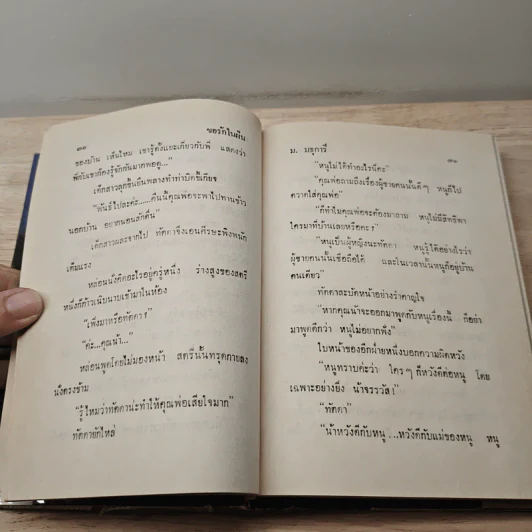 ๓๐
ขอรักในฝัน
ของบ้าน เส้นไหม เขารู้ตั้งแยะเกี่ยวกับพี่ แสดงว่า
พี่กับเขาต้องรู้จักกันมากพอดู..."
เด็กสาวลุกขึ้นยืนพลางทำท่าบิดขี้เกียจ
"พันธ์ไปละค่ะ.....คืนนี้คุณพ่อจะพาไปทานข้าว
นอกบ้าน อยากนอนสักตื่น"
เด็กสาวผละจากไป ทัดดาจึงเอนศีรษะพิงพนัก
เต็มแรง
หล่อนนั่งคิดอะไรอยู่ครู่หนึ่ง ร่างสูงของสตรี
หนึ่งก็ก้าวเนิบนาบเข้ามาในห้อง
"เพิ่งมาหรือทัดดา?"
"ค่ะ...คุณน้า..."
หล่อนพูดโดยไม่มองหน้า สตรีนั้นทรุดกายลง
นั่งตรงข้าม
"รู้ไหมว่าทัดดาน่ะทำให้คุณพ่อเสียใจมาก"
ทัดดายักไหล่
ม. มธุการี
๓๑
"หนูไม่ได้ทำอะไรนี่คะ"
"คุณพ่อถามถึงเรื่องผู้ชายคนนั้นดี ๆ หนูก็ไป
ตวาดใส่คุณพ่อ"
"ก็ทำไมคุณพ่อจะต้องมาถาม หนูไม่มีสิทธิพา
ใครมาที่บ้านเลยหรือคะ?"
"หนูเป็นผู้หญิงนะทัดดา หนูรู้ได้อย่างไรว่า
ผู้ชายคนนั้นเชื่อถือได้ และในเวลานั้นหนูก็อยู่บ้าน
คนเดียว"
ทัดดาสะบัดหน้าอย่างรำคาญใจ
"หากคุณน้าจะออกมาพูดกับหนูเรื่องนี้ ก็อย่า
มาพูดดีกว่า หนูไม่อยากฟัง"
ใบหน้าของอีกฝ่ายหนึ่งบอกความผิดหวัง
"หนูทราบค่ะว่า ใคร ๆ ก็หวังดีต่อหนู โดย
เฉพาะอย่างยิ่ง น้าจรรวัส!"
"ทัดดา"
"น้าหวังดีกับหนู...หวังดีกับแม่ของหนู หนู